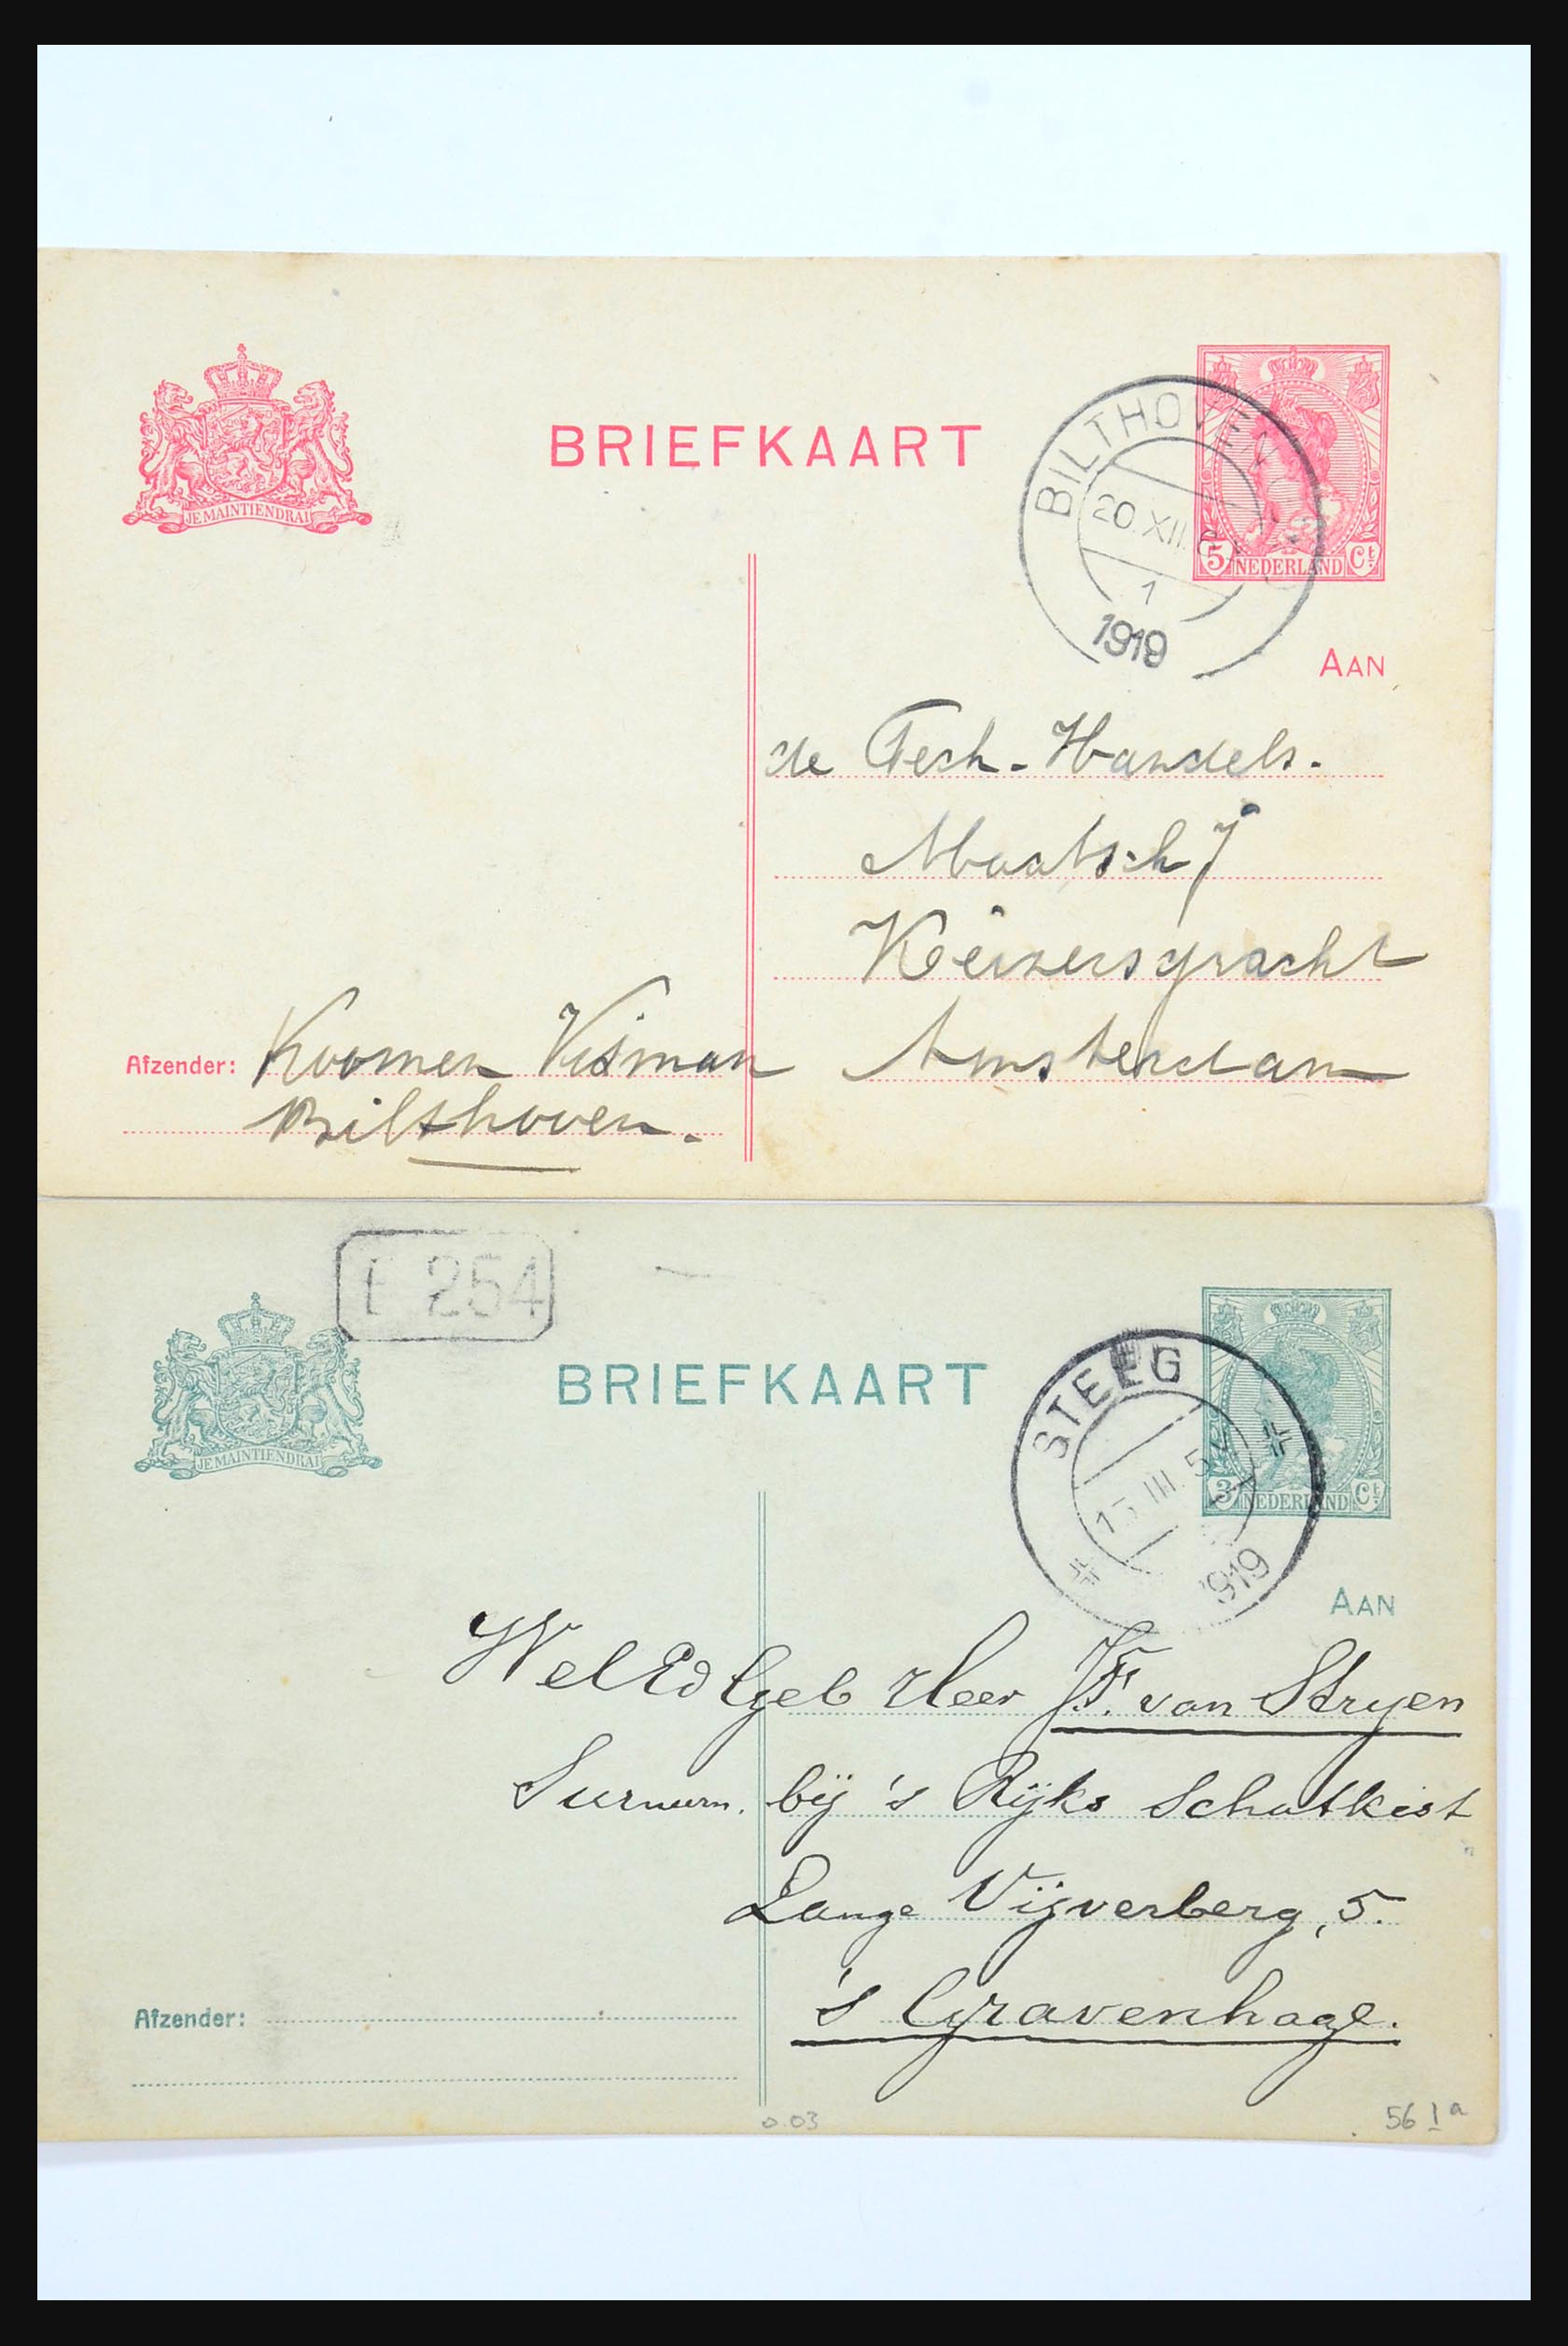 BRIEFKAART
JE MAINTIENDRAI
BILTHOVEN
20.XII.
1
1919
5 NEDERLAND Ct
AAN
de Tech-Handels-
Maatschij
Keizersgracht
Amsterdam
Afzender: Koomen Visman
Bilthoven.
254
BRIEFKAART
JE MAINTIENDRAI
STEEG
III. 5
1919
3 NEDERLAND Ct
AAN
WelEdGeb Heer J.F. van Stryen
Surnum. bij 's Rijks Schatkist
Lange Vijverberg, 5.
's Gravenhage.
Afzender:
0.03
56 I a